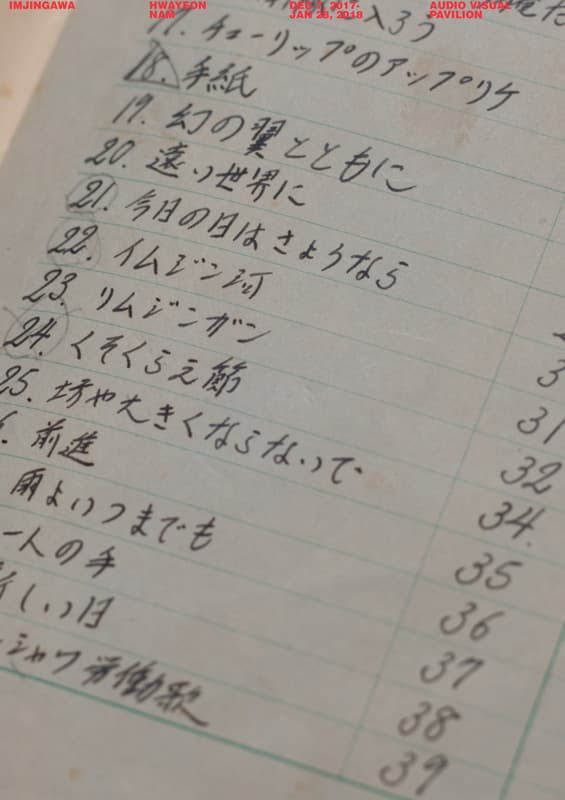 IMJINGAWA
HWAYEON NAM
DEC 1, 2017- JAN 28, 2018
AUDIO VISUAL PAVILION
17. チューリップのアップリケ
18. 手紙
19. 幻の翼とともに
20. 遠い世界に
21. 今日の日はさようなら
22. イムジン河
23. リムジンガン
24. くそくらえ節
25. 坊や大きくならないで
前進
雨よいつまでも
一人の手
しい日
シャワ労働歌
3
31
32
34.
35
36
37
38
39